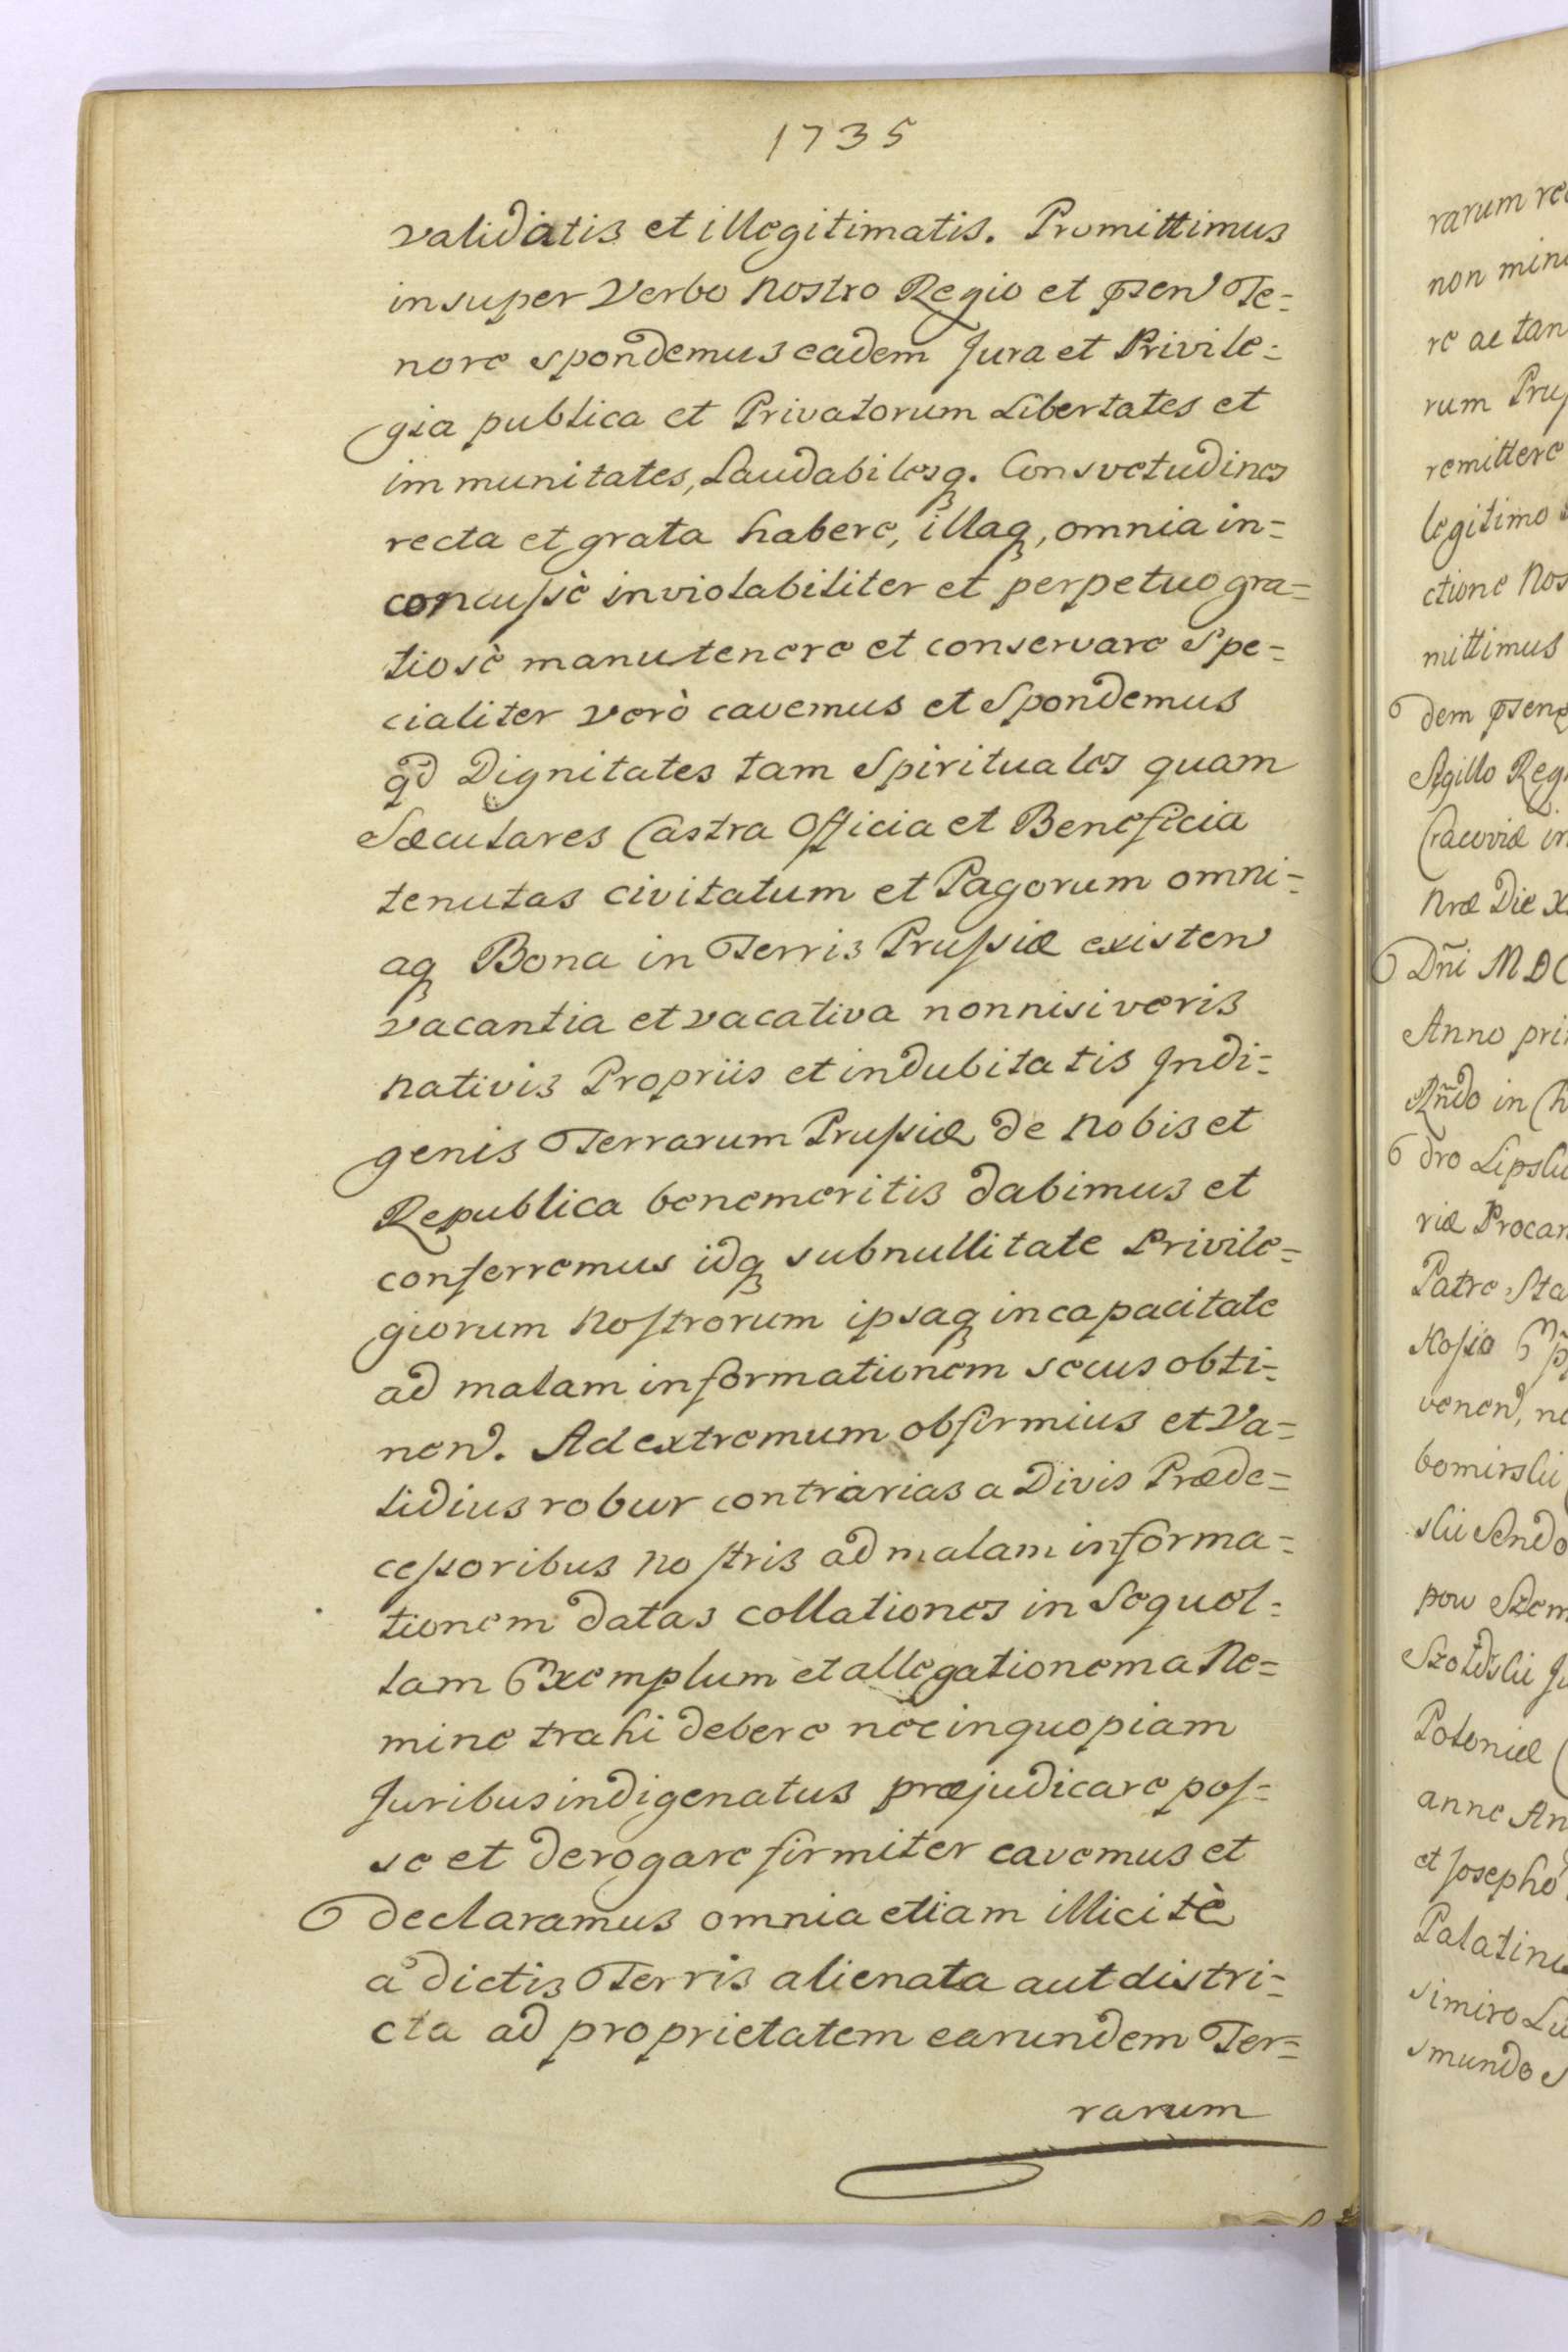 1735
validatis et illegitimatis. Promittimus
insuper Verbo Nostro Regio et pñsen Te=
nore spondemus eadem Jura et Privile=
gia publica et Privatorum Libertates et
immunitates, Laudabilesq. Consvetudines
recta et grata habere, illaq, omnia in=
concussè inviolabiliter et perpetuo gra=
tiosè manutenere et conservare Spe=
cialiter verò cavemus et Spondemus
qd Dignitates tam Spirituales quam
Sæculares Castra Officia et Beneficia
tenutas civitatum et Pagorum omni=
aq Bona in Terris Prussiæ existen
vacantia et vacativa nonnisi veris
nativis Propriis et indubitatis Indi=
genis Terrarum Prussiæ de Nobis et
Republica benemeritis dabimus et
conferremus idq sub nullitate Privile=
giorum Nostrorum ipsaq incapacitate
ad malam informationem secus obti=
nen. Ad extremum obfirmius et Va=
lidius robur contrarias a Divis Præde=
cessoribus Nostris ad malam informa=
tionem datas collationes in Sequel=
lam Exemplum et allegationem a Ne=
mine trahi debere nec in quopiam
Juribus indigenatus præjudicare pos=
se et derogare firmiter cavemus et
declaramus omnia etiam illicitè
a dictis Terris alienata aut distri=
cta ad proprietatem earundem Ter=
rarum
rarum
non
re ac tan
rum
remittere
legitimo
ctione
mittimus
dem
Sigillo
Cracoviæ
Nræ Die
Dñi MDC
Anno
Rñdo in
dro
riæ
Patre
venen,
bomirslii
slii
pow
Poloniæ
anne
et Josepho
simiro
smundo